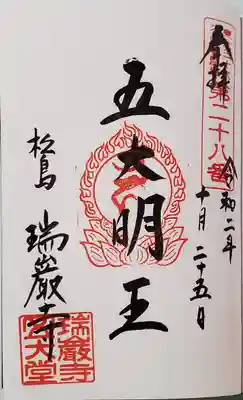 奉拝
第二十八番
令和二年
十月二十五日
五大明王
松島
瑞巌寺
瑞巌寺
五大堂